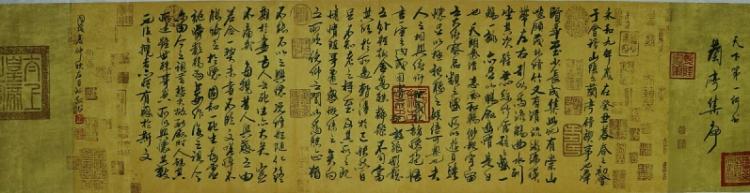 天下第一行書
蘭亭集序
永和九年歲在癸丑暮春之初會
于會稽山陰之蘭亭脩稧事也群
賢畢至少長咸集此地有崇山
峻領茂林脩竹又有清流激湍暎
帶左右引以為流觴曲水列
坐其次雖無絲竹管弦之盛一
觴一詠亦足以暢敘幽情是日
也天朗氣清惠風和暢仰觀宇宙
之大俯察品類之盛所以遊目騁
懷足以極視聽之娛信可樂也夫
人之相與俯仰一世或取諸懷抱悟
言一室之內或因寄所託放浪形骸
之外雖趣舍萬殊靜躁不同當
其欣於所遇暫得於己快然自足
不知老之將至及其所之既
惓情隨事遷感慨係之矣向
之所欣俛仰之間以為陳迹猶
不能不以之興懷況脩短隨化終
期於盡古人云死生亦大矣豈
不痛哉每攬昔人興感之由
若合一契未嘗不臨文嗟悼不
能喻之於懷固知一死生為虛
誕齊彭殤為妄作後之視今
亦由今之視昔悲夫故列敘時人錄其
所述雖世殊事異所以興懷其致
一也後之攬者亦將有感於斯文